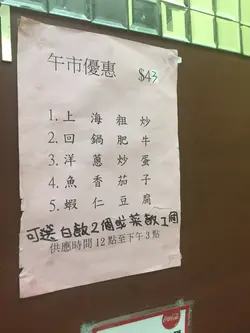 午市優惠 $43
1. 上海粗炒
2. 回鍋肥牛
3. 洋蔥炒蛋
4. 魚香茄子
5. 蝦仁豆腐
可選白飯2個或菜飯1個
供應時間12點至下午3點
Coca-Cola